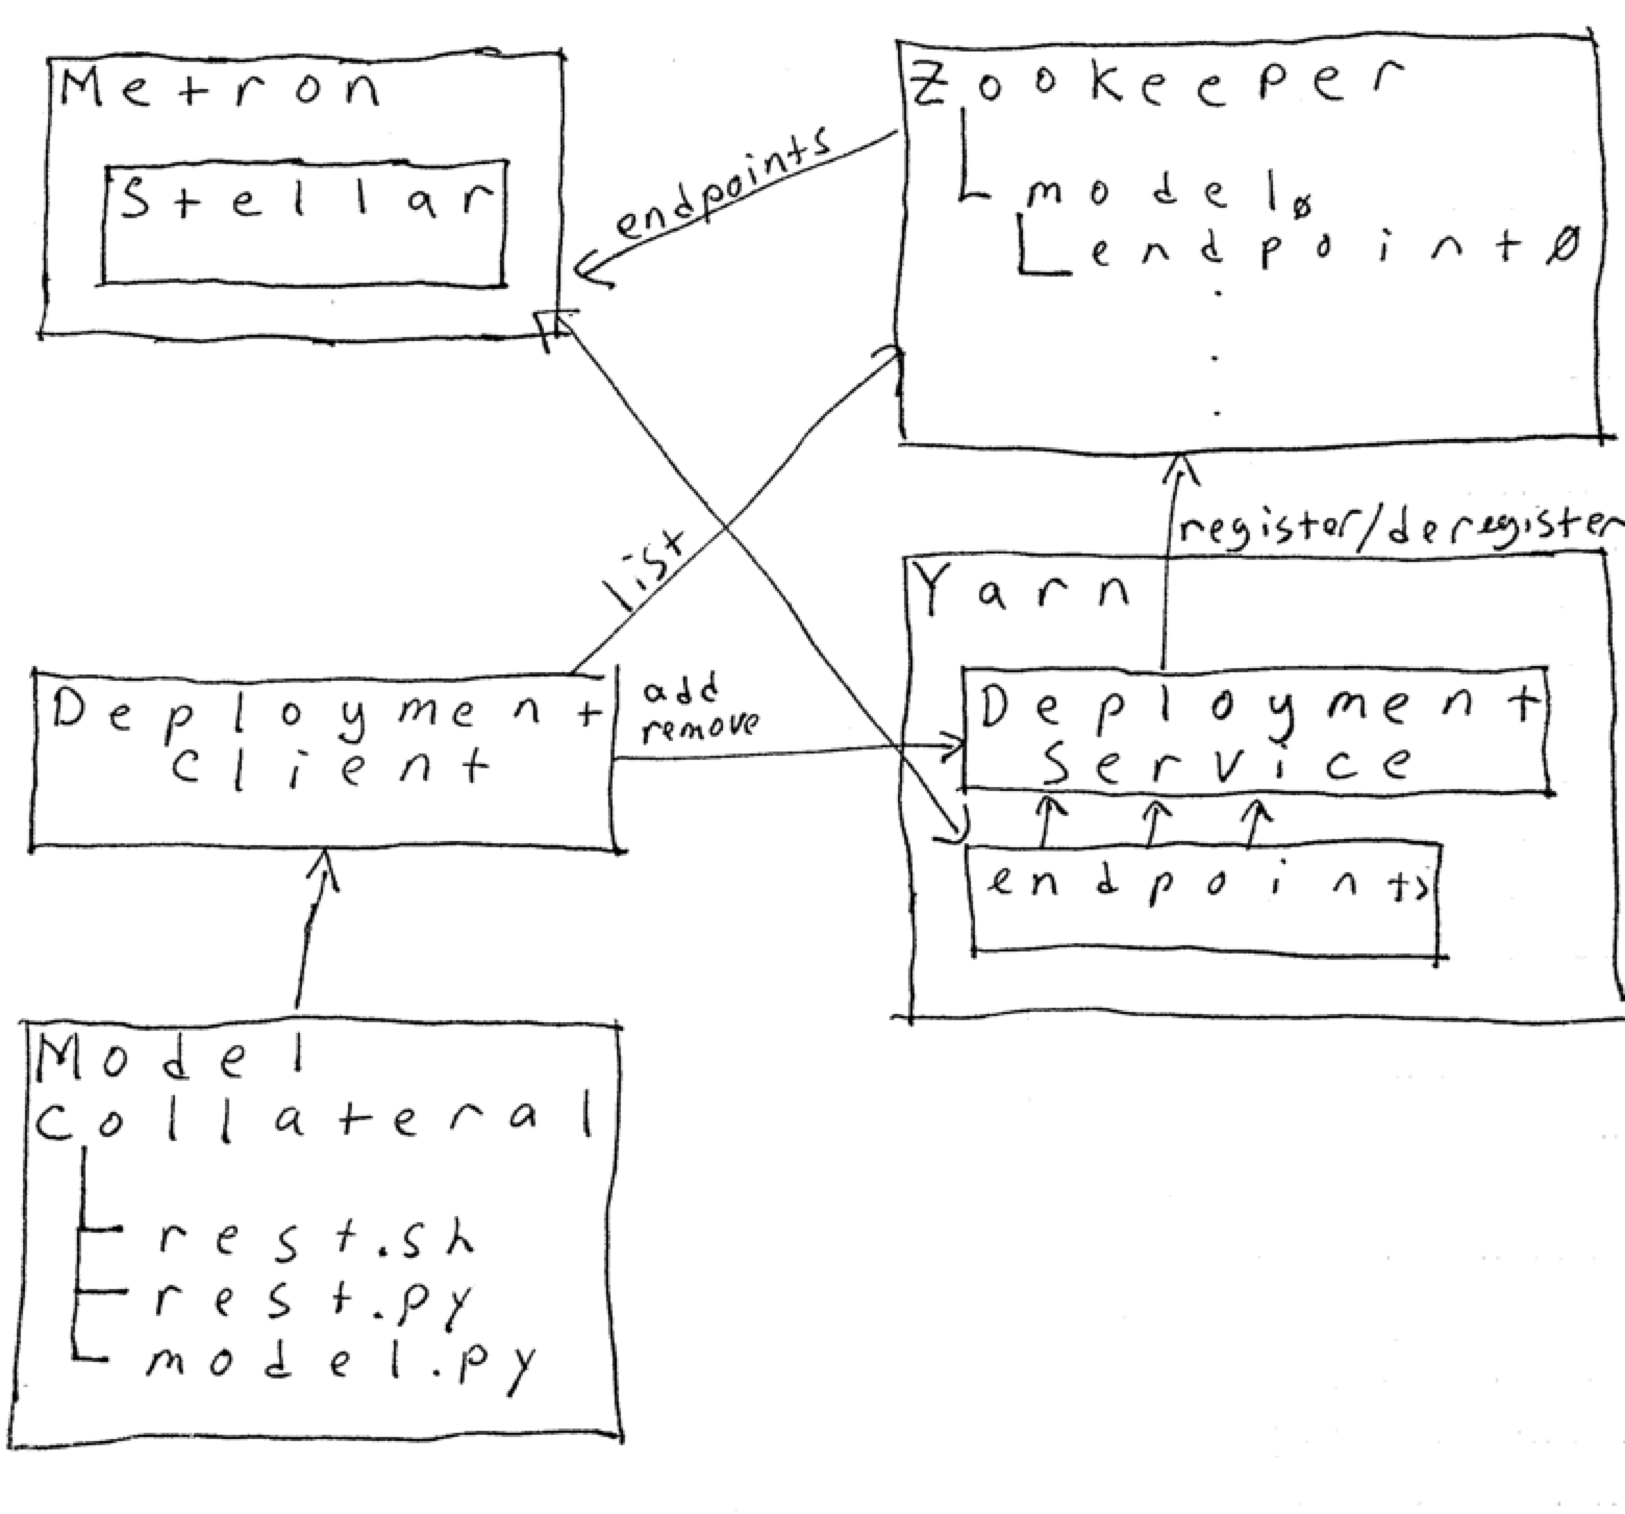 Metron
Stellar
endpoints
Zookeeper
model0
endpoint0
.
.
.
list
register/deregister
Yarn
Deployment
Client
add
remove
Deployment
Service
endpoints
Model
Collateral
rest.sh
rest.py
model.py